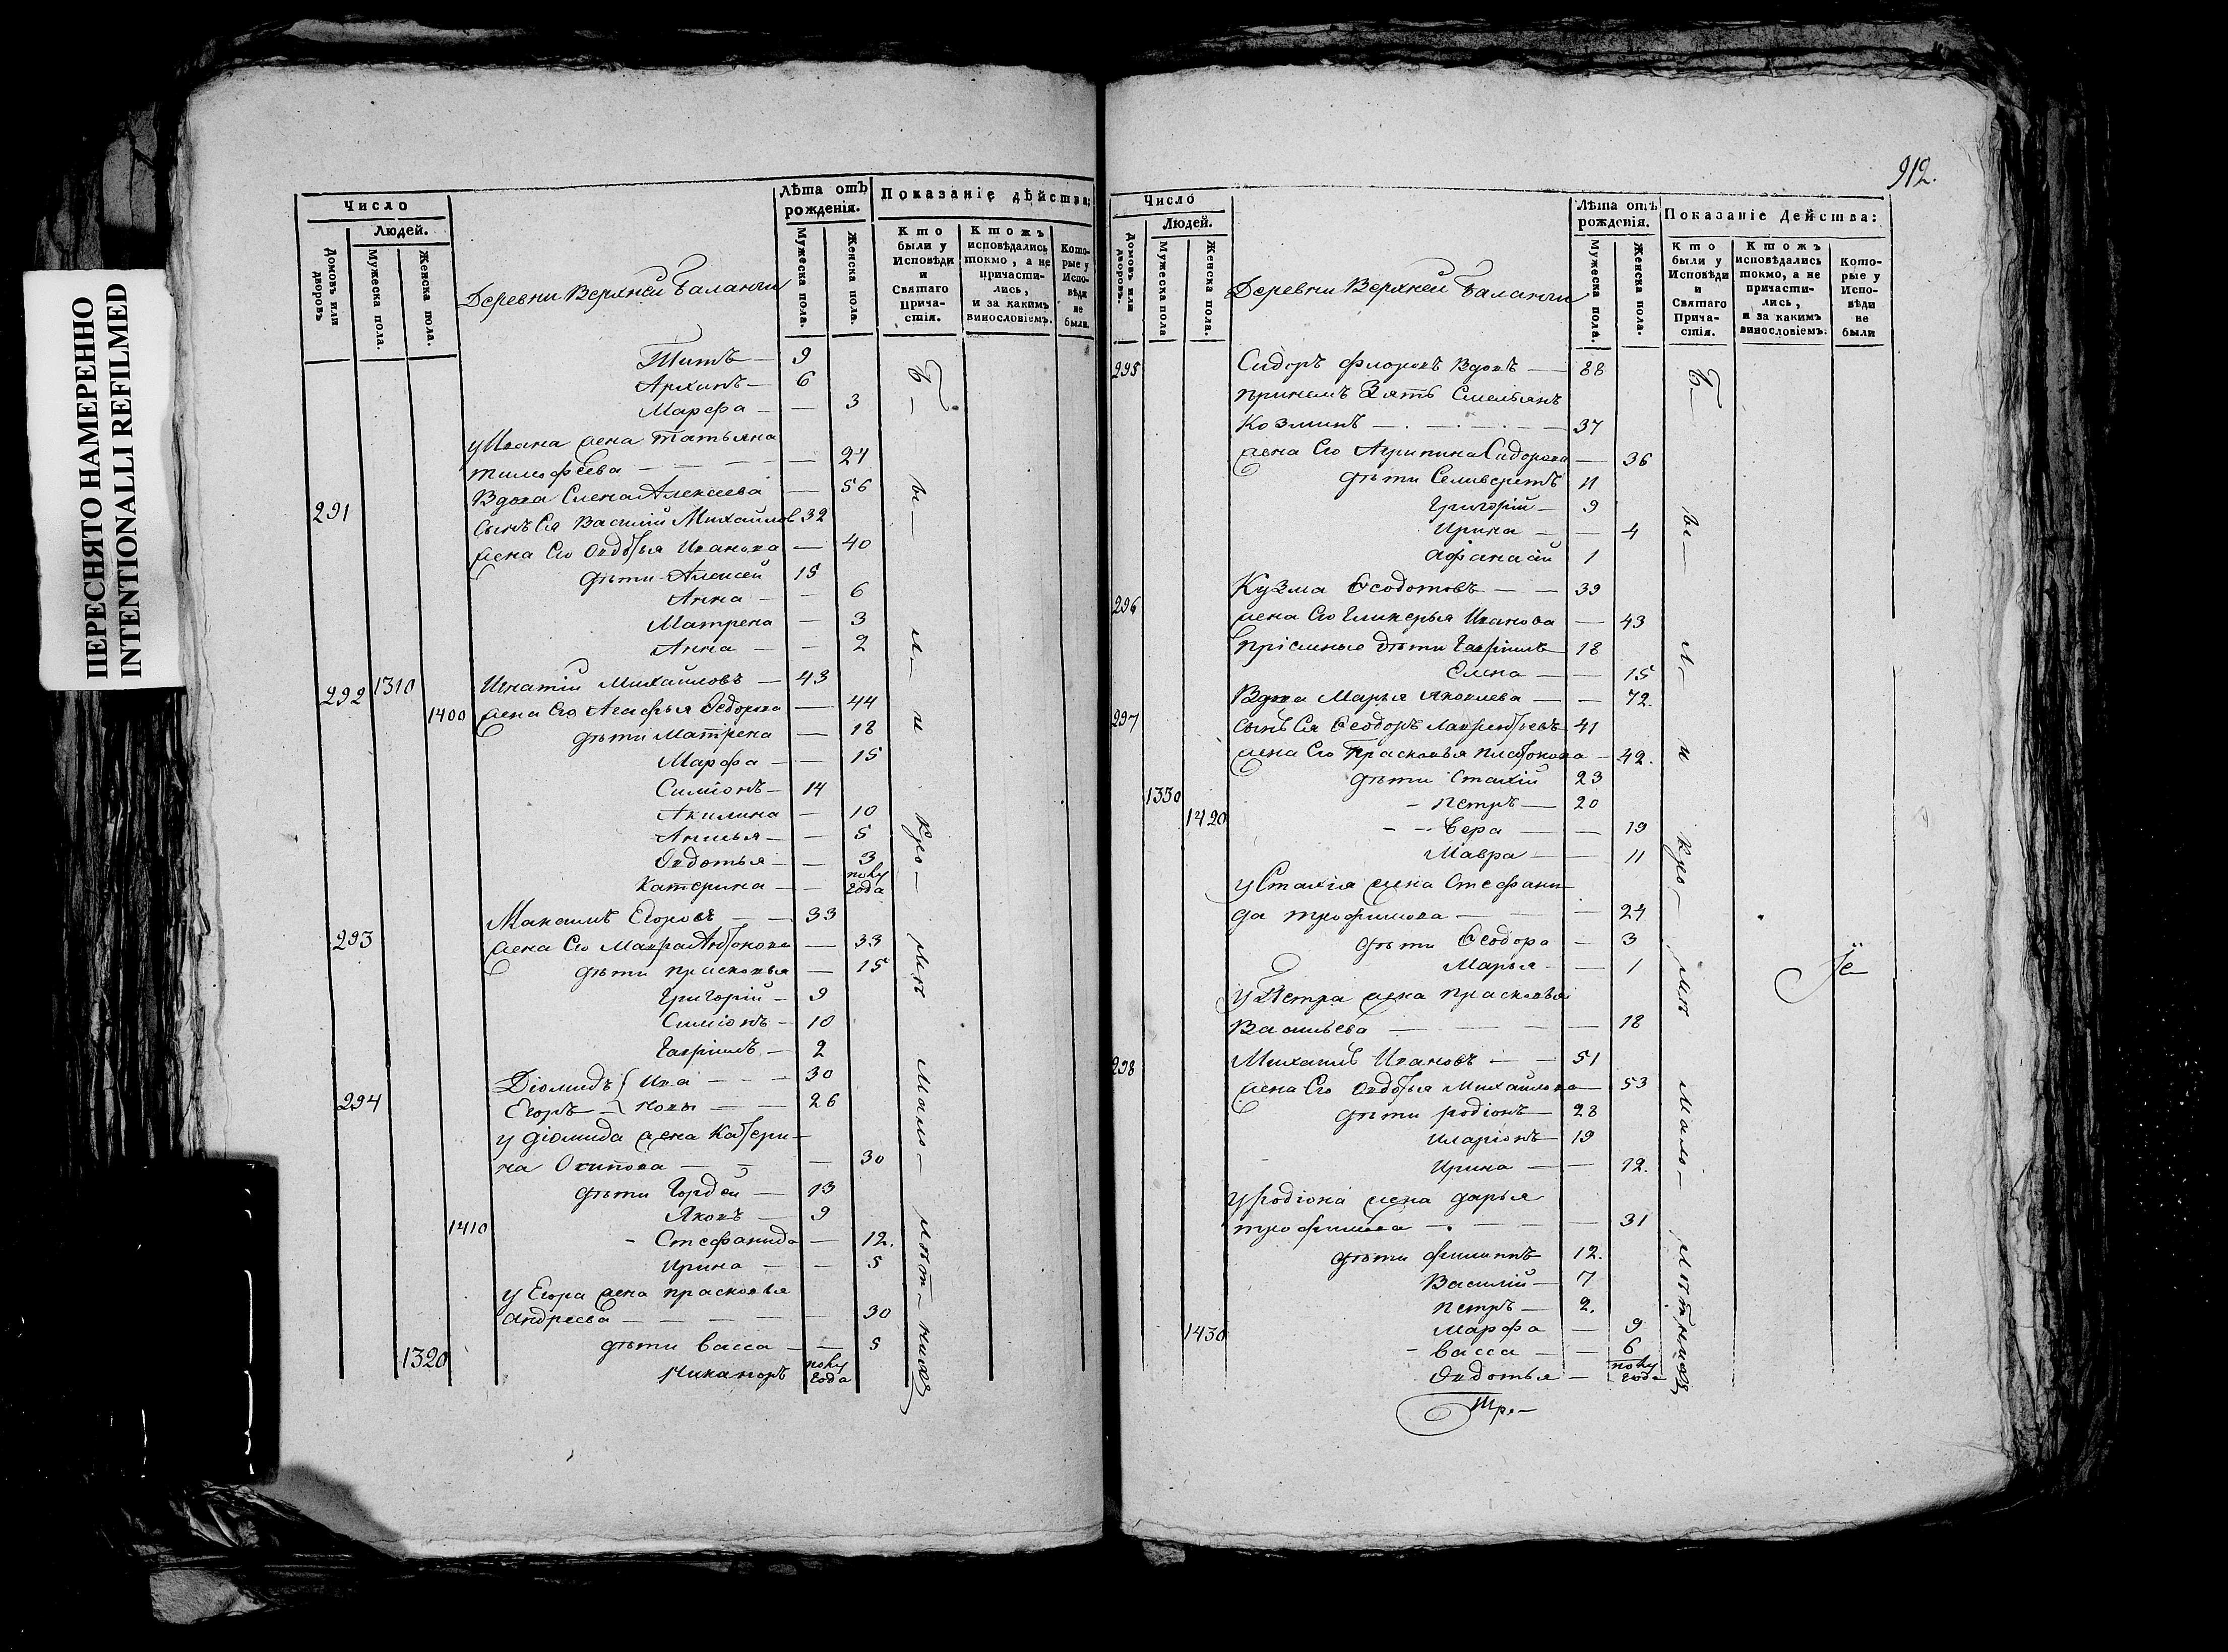 ПЕРЕСНЯТО НАМЕРЕННО
INTENTIONALLI REFILMED
Число
Людей.
Домовъ или дворовъ
Мужеска пола.
Женска пола.
Деревни Верхней Баланчи
Лѣта отъ рожденія.
Мужеска пола.
Женска пола.
Показаніе дѣйства:
Кто были у Исповѣди и Святаго Причастія.
Ктожъ исповѣдались токмо, а не причастились, и за какимъ винословіемъ.
Которые у Исповѣди не были.
Титъ — 9
Архипъ — 6
Марфа — — 3
у Ивана жена Татьяна
Тимофеева — — 24
291 Вдова Елена Алексеева — 56
сынъ Ея Василій Михайлов 32
жена Его Овдотья Иванова — 40
дѣти Алексей 15
Анна — — 6
Матрена — 3
Анна — — 2
292 1310 Игнатій Михайловъ — 43
1400 жена Его Агафья Федорова — 44
дѣти Матрена — 18
Марфа — — 15
Симіонъ — 14
Акилина — 10
Анисья — — 5
Овдотья — — 3
Катерина — — полу года
293 Макаимъ Егоровъ — — 33
жена Его Мавра Антонова — 33
дѣти Прасковья — 15
Григорій — 9
Симіонъ — 10
Гавріилъ — 2
294 Діомидъ { Ива — — 30
Егоръ — { новы — — 26
у Діомида жена Катери-
на Осипова — — — 30
дѣти Гордей — 13
Яковъ — 9
1410 Стефанида — 12.
Ирина — — 5
у Егора жена Прасковья
Андреева — — — — 30
дѣти Васса — — 5
1320 Никаноръ полу года
Бы-ли и кро-мѣ мало-лѣт-нихъ
912.
Число
Людей.
Домовъ или дворовъ.
Мужеска пола
Женска пола.
Деревни Верхней Баланчи
Лѣта отъ рожденія.
Мужеска пола.
Женска пола.
Показаніе Действа:
Кто были у Исповѣди и Святаго Причастія.
Ктожъ исповѣдались токмо, а не причастились, и за какимъ винословіемъ.
Которые у Исповѣди не были
295 Сидоръ Флоровъ Вдовъ — 88
принемъ Зять Емельянъ
Козминъ — — — 37
жена Его Агрипина Сидорова — 36
дѣти Селиверстъ 11
Григорій — 9
Ирина — — 4
Афанасій 1
296 Кузма Ѳеодотовъ — — 39
жена Его Гликерья Иванова — 43
пріемные дѣти Гавріилъ 18
Елена — — 15
297 Вдова Марья Яковлева — — 72.
сынъ Ея Ѳеодоръ Лаврентьевъ 41
жена Его Прасковья Платонова — 42.
дѣти Стахій 23
1330 Петръ — 20
1420 Вера — — 19
Мавра — — 11
у Стахія жена Стефани-
да Трофимова — — 24
дѣти Ѳеодора — 3
Марья — — 1
у Петра жена Прасковья
Васильева — — — 18
298 Михаилъ Ивановъ — — 51
жена Его Овдотья Михайлова — 53
дѣти Родіонъ — 28
Иларіонъ — 19
Ирина — — 12.
у Родіона жена Дарья
Трофимова — — — 31
дѣти Филиппъ 12.
Василій — 7
Петръ — 2.
1430 Марфа — 9
Васса — — 6
Овдотья — полу года
Бы-ли и кро-мѣ мало-лѣтнихъ